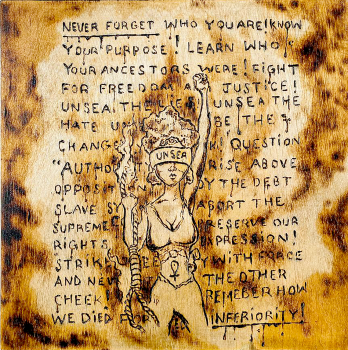 NEVER FORGET WHO YOU ARE! KNOW
YOUR PURPOSE! LEARN WHO
YOUR ANCESTORS WERE! FIGHT
FOR FREEDOM JUSTICE!
UNSEA THE LIES UNSEA THE
HATE BE THE
CHANGE QUESTION
UNSEA
"AUTHO RISE ABOVE
OPPOSIT BY THE DEBT
SLAVE SY ABORT THE
SUPREME RESERVE OUR
RIGHTS PRESSION!
STRIKE Y WITH FORCE
AND NEV THE OTHER
CHEEK REMEBER HOW
WE DIED F INFERIORITY!